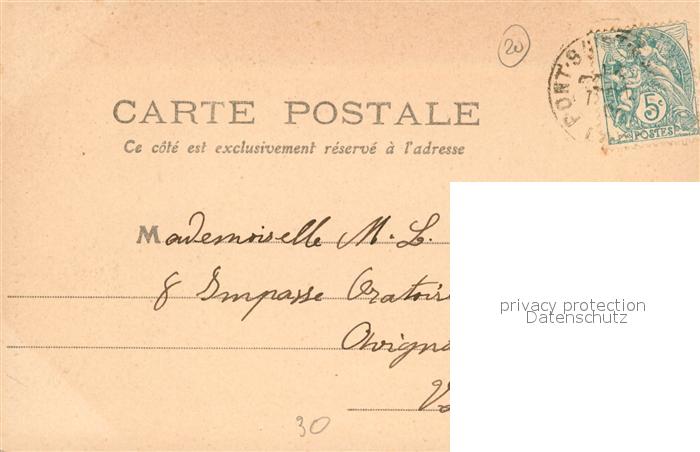 20
PONT-S
5c
POSTES
CARTE POSTALE
Ce côté est exclusivement réservé à l'adresse
Mademoiselle M. L.
8 Impasse Oratoire
Avigno
privacy protection
Datenschutz
30